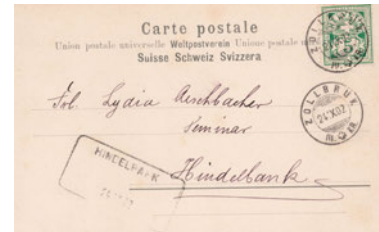 Carte postale
Union postale universelle Weltpostverein Unione postale
Suisse Schweiz Svizzera
ZOLLBRUK
5
ZOLLBRUK
24.X.02
Frl. Lydia Aeschbacher
Seminar
Hindelbank
HINDELBANK